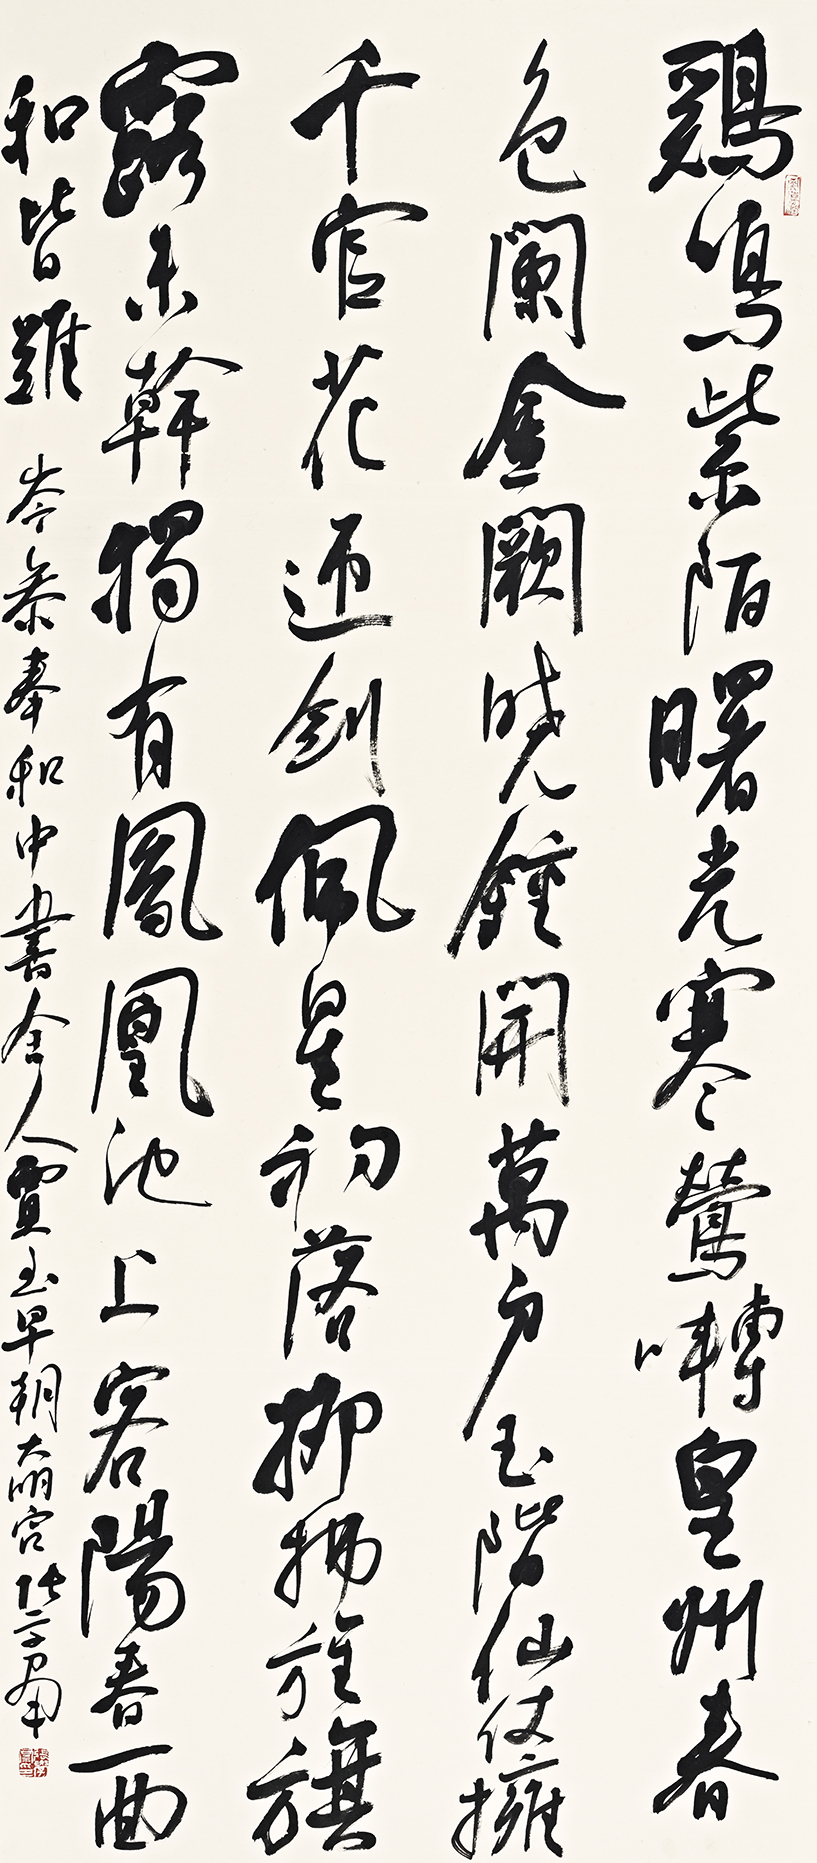 鷄鳴紫陌曙光寒鶯囀皇州春
色闌金闕曉鍾開萬戶玉階仙仗擁
千官花迎劍佩星初落柳拂旌旗
露未幹獨有鳳凰池上客陽春一曲
和皆難 岑參奉和中書舍人賈至早朝大明宮 張